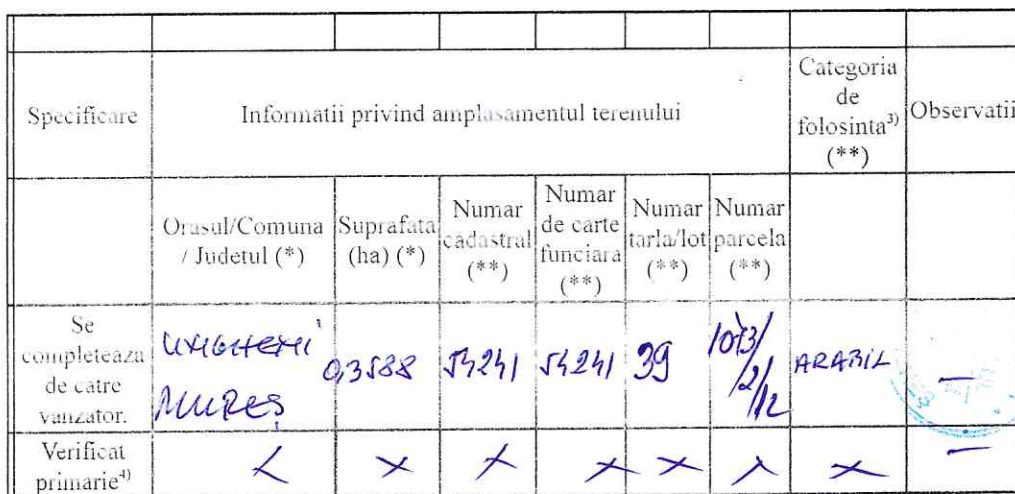 Specificare
Informatii privind amplasamentul terenului
Categoria
de
folosinta3)
(**)
Observatii
Orasul/Comuna
/ Judetul (*)
Suprafata
(ha) (*)
Numar
cadastral
(**)
Numar
de carte
funciara
(**)
Numar
tarla/lot
(**)
Numar
parcela
(**)
Se
completeaza
de catre
vanzator.
UNGHENI
MUREȘ
0,3588
54241
54241
39
1073/
/2/
/12
ARABIL
—
Verificat
primarie4)
X
X
X
X
X
X
X
—